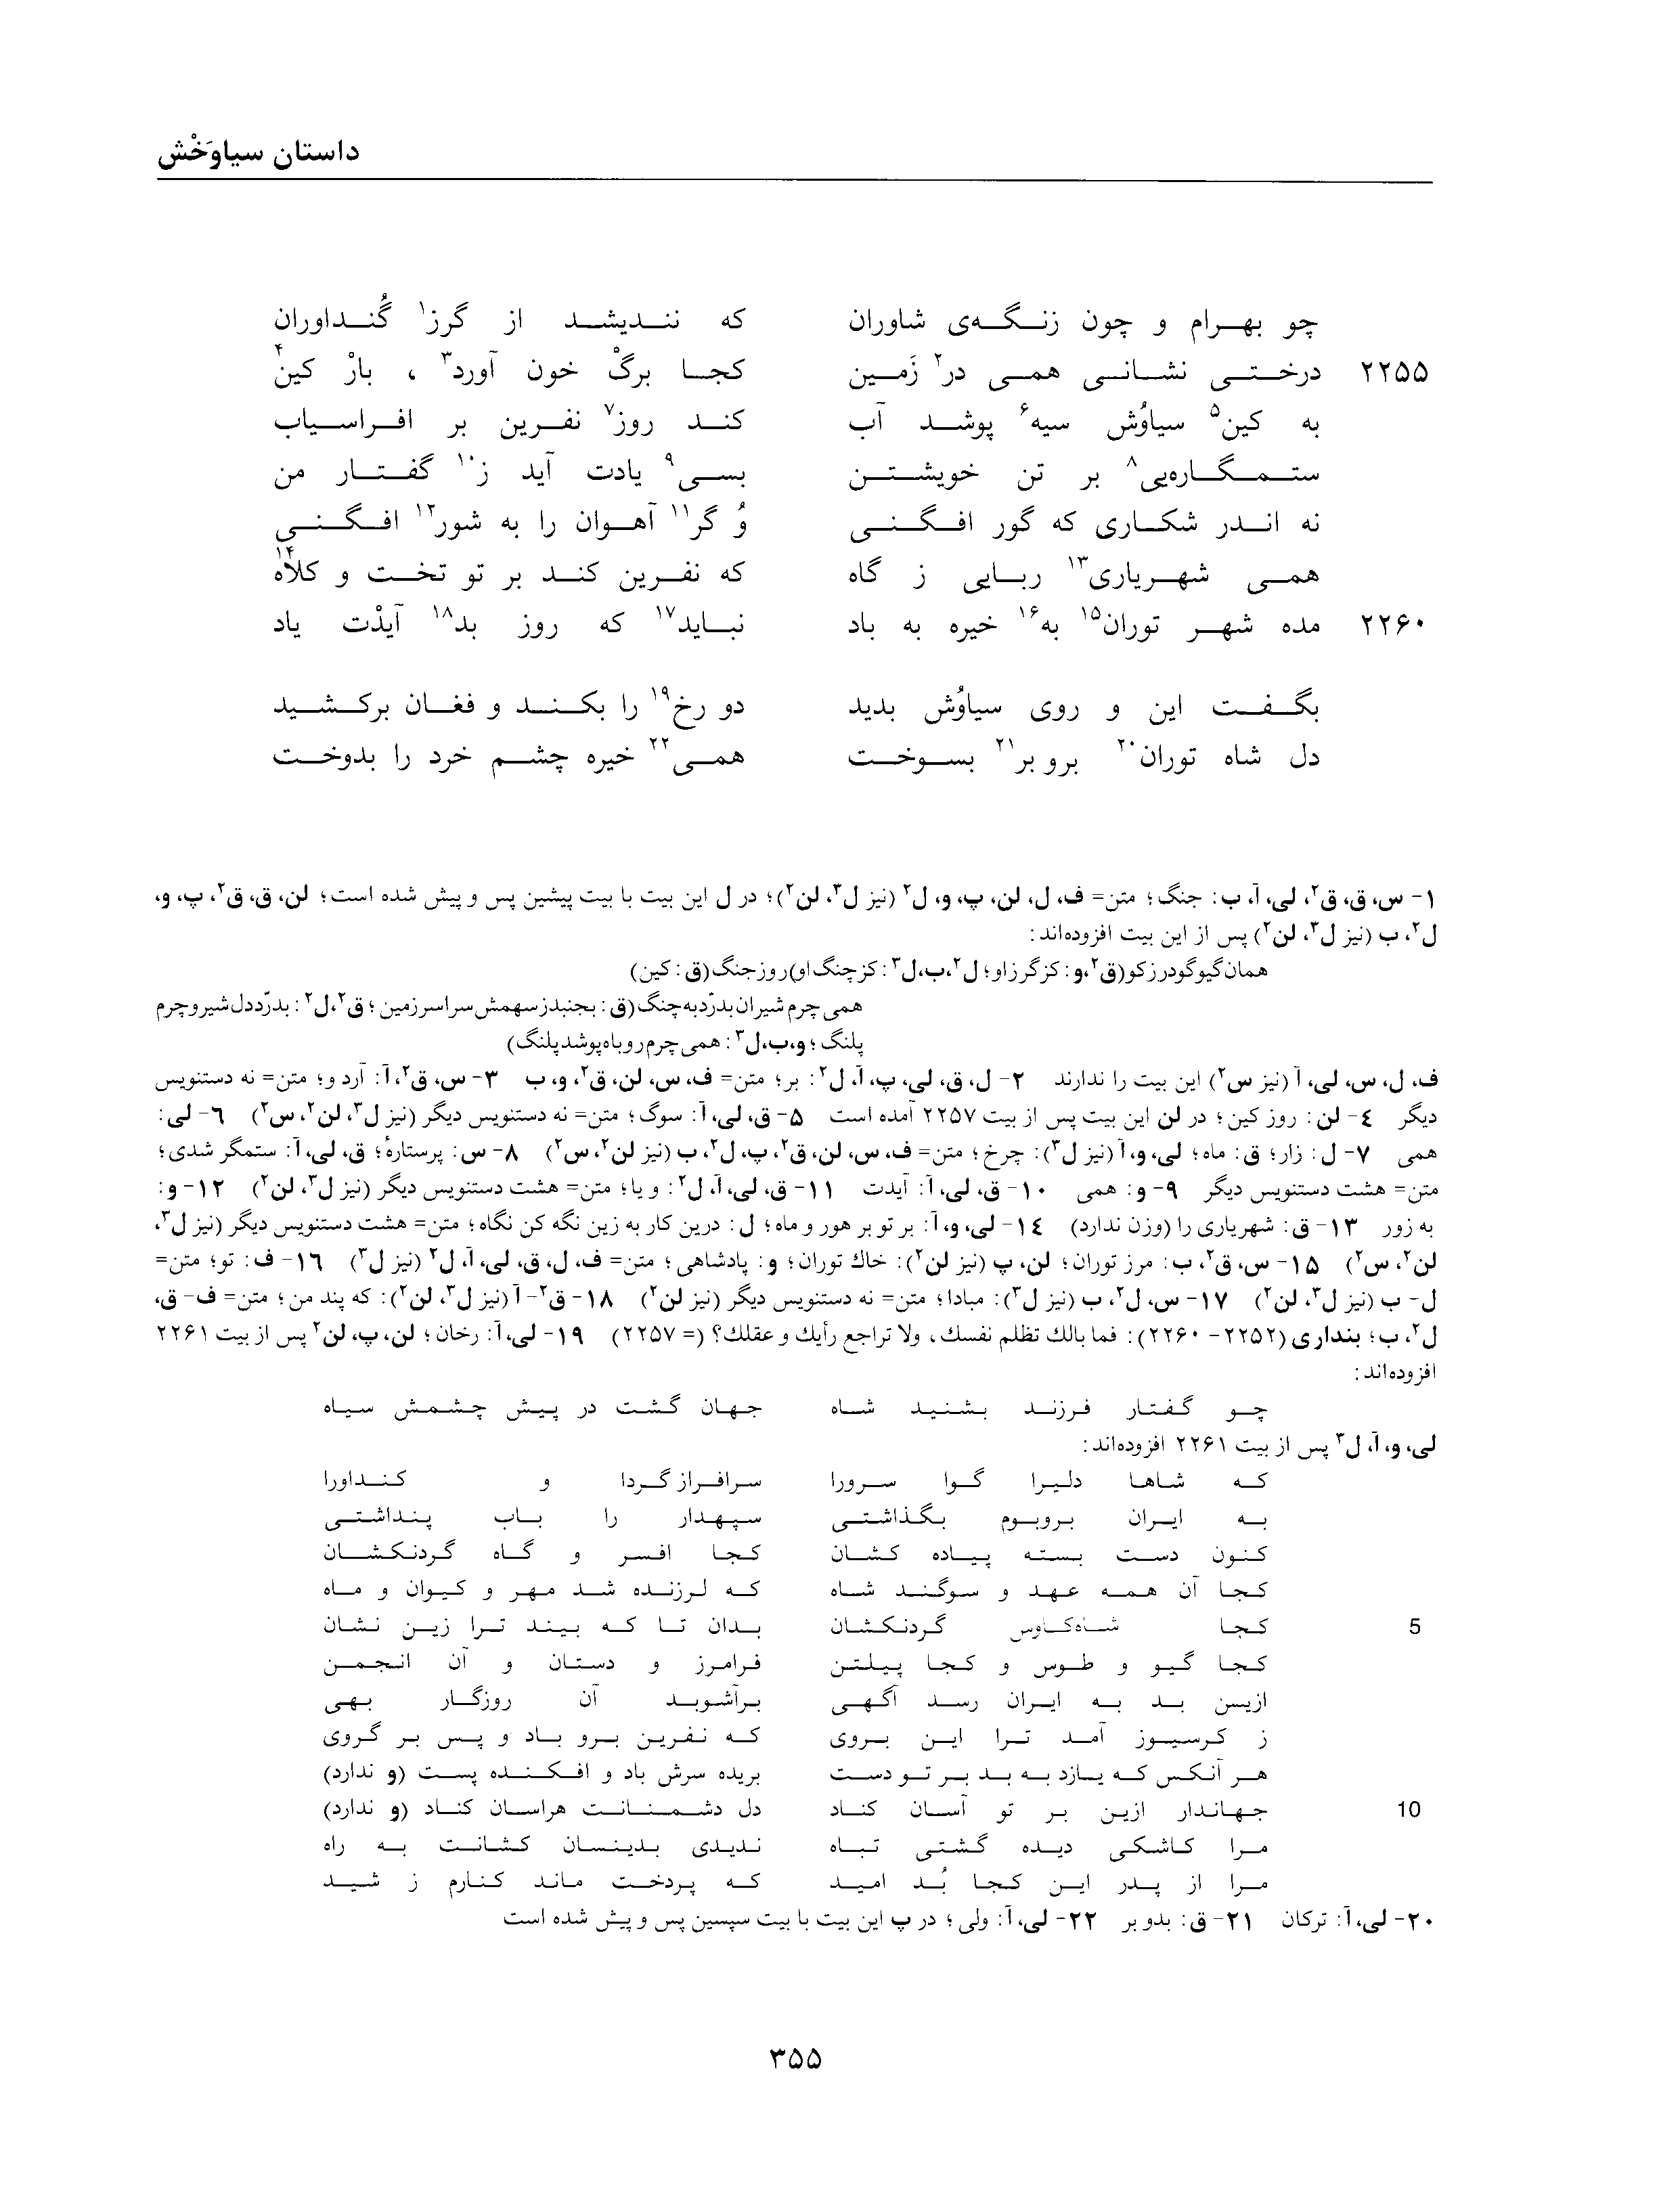 داستان سیاوَخْش
چو بهرام و چون زنگه‌ی شاوران که نندیشد از گرز۱ گُنداوران
۲۲۵۵ درختی نشانی همی در۲ زَمین کجا برگْ خون آورد۳ ، بارْ کین۴
به کین۵ سیاوُش سیه۶ پوشد آب کند روز۷ نفرین بر افراسیاب
ستمگاره‌یی۸ بر تن خویشتن بسی۹ یادت آید ز۱۰ گفتار من
نه اندر شکاری که گور افگنی وُ گر۱۱ آهوان را به شور۱۲ افگنی
همی شهریاری۱۳ ربایی ز گاه که نفرین کند بر تو تخت و کلاه۱۴
۲۲۶۰ مده شهر توران۱۵ به۱۶ خیره به باد نباید۱۷ که روز بد۱۸ آیدْت یاد
بگفت این و روی سیاوُش بدید دو رخ۱۹ را بکند و فغان برکشید
دل شاه توران۲۰ برو بر۲۱ بسوخت همی۲۲ خیره چشم خرد را بدوخت
۱- س، ق، ق۲، لی، آ، ب: جنگ؛ متن= ف، ل، لن، پ، و، ل۲ (نیز ل۳، لن۲)؛ در ل این بیت با بیت پیشین پس و پیش شده است؛ لن، ق، ق۲، پ، و،
ل۲، ب (نیز ل۳، لن۲) پس از این بیت افزوده‌اند:
همان گیو گودرز کو (ق۲، و: کز گرز او؛ ل۲، ب، ل۳: کز چنگ او) روز جنگ (ق: کین)
همی چرم شیران بدرّد به چنگ (ق: بجنبد ز سهمش سراسر زمین؛ ق۲، ل۲: بدرّد دل شیر و چرم
پلنگ؛ و، ب، ل۳: همی چرم روباه پوشد پلنگ)
ف، ل، س، لی، آ (نیز س۲) این بیت را ندارند ۲- ل، ق، لی، پ، آ، ل۲: بر؛ متن= ف، س، لن، ق۲، و، ب ۳- س، ق۲، آ: آرد و؛ متن= نه دستنویس
دیگر ۴- لن: روز کین؛ در لن این بیت پس از بیت ۲۲۵۷ آمده است ۵- ق، لی، آ: سوگ؛ متن= نه دستنویس دیگر (نیز ل۳، لن۲، س۲) ۶- لی:
همی ۷- ل: زار؛ ق: ماه؛ لی، و، آ (نیز ل۳): چرخ؛ متن= ف، س، لن، ق۲، پ، ل۲، ب (نیز لن۲، س۲) ۸- س: پرستارهٔ؛ ق، لی، آ: ستمگر شدی؛
متن= هشت دستنویس دیگر ۹- و: همی ۱۰- ق، لی، آ: آیدت ۱۱- ق، لی، آ، ل۲: و یا؛ متن= هشت دستنویس دیگر (نیز ل۳، لن۲) ۱۲- و:
به زور ۱۳- ق: شهریاری را (وزن ندارد) ۱۴- لی، و، آ: بر تو بر هور و ماه؛ ل: درین کار به زین نگه کن نگاه؛ متن= هشت دستنویس دیگر (نیز ل۳،
لن۲، س۲) ۱۵- س، ق۲، ب: مرز توران؛ لن، پ (نیز لن۲): خاك توران؛ و: پادشاهی؛ متن= ف، ل، ق، لی، آ، ل۲ (نیز ل۳) ۱۶- ف: تو؛ متن=
ل- ب (نیز ل۳، لن۲) ۱۷- س، ل۲، ب (نیز ل۳): مبادا؛ متن= نه دستنویس دیگر (نیز لن۲) ۱۸- ق۲- آ (نیز ل۳، لن۲): که پند من؛ متن= ف- ق،
ل۲، ب؛ بنداری (۲۲۵۲- ۲۲۶۰): فما بالك تظلم نفسك، ولا تراجع رأیك و عقلك؟ (= ۲۲۵۷) ۱۹- لی، آ: رخان؛ لن، پ، لن۲ پس از بیت ۲۲۶۱
افزوده‌اند:
چو گفتار فرزند بشنید شاه جهان گشت در پیش چشمش سیاه
لی، و، آ، ل۳ پس از بیت ۲۲۶۱ افزوده‌اند:
که شاها دلیرا گوا سرورا سرافراز گردا و کنداورا
به ایران بروبوم بگذاشتی سپهدار را باب پنداشتی
کنون دست بسته پیاده کشان کجا افسر و گاه گردنکشان
کجا آن همه عهد و سوگند شاه که لرزنده شد مهر و کیوان و ماه
5 کجا شاه‌کاوس گردنکشان بدان تا که بیند ترا زین نشان
کجا گیو و طوس و کجا پیلتن فرامرز و دستان و آن انجمن
ازیسن بد به ایران رسد آگهی برآشوبد آن روزگار بهی
ز کرسیوز آمد ترا این بروی که نفرین برو باد و پس بر گروی
هر آنکس که یازد به بد بر تو دست بریده سرش باد و افکنده پست (و ندارد)
10 جهاندار ازین بر تو آسان کناد دل دشمنانت هراسان کناد (و ندارد)
مرا کاشکی دیده گشتی تباه ندیدی بدینسان کشانت به راه
مرا از پدر این کجا بُد امید که پردخت ماند کنارم ز شید
۲۰- لی، آ: ترکان ۲۱- ق: بدو بر ۲۲- لی، آ: ولی؛ در پ این بیت با بیت سپسین پس و پیش شده است
۳۵۵